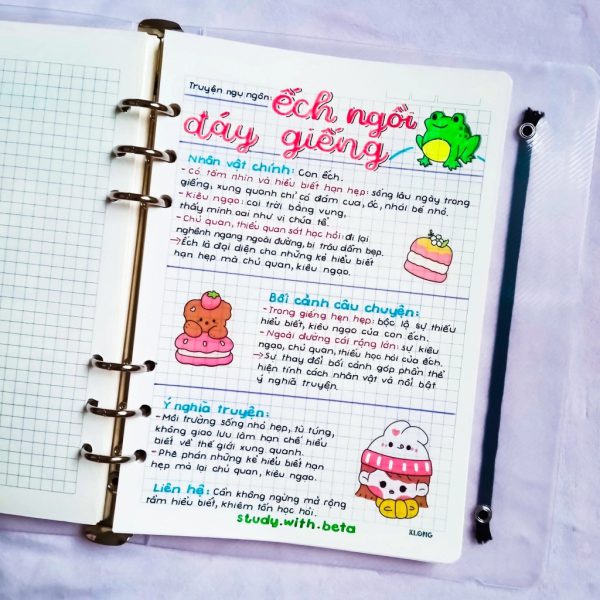 Truyện ngụ ngôn: ếch ngồi
đáy giếng
Nhân vật chính: Con ếch.
- Có tầm nhìn và hiểu biết hạn hẹp: sống lâu ngày trong
giếng, xung quanh chỉ có đám cua, ốc, nhái bé nhỏ.
- Kiêu ngạo: coi trời bằng vung,
thấy mình oai như vị chúa tể.
- Chủ quan, thiếu quan sát học hỏi: đi lại
nghênh ngang ngoài đường, bị trâu dẫm bẹp.
→ Ếch là đại diện cho những kẻ hiểu biết
hạn hẹp mà chủ quan, kiêu ngạo.
Bối cảnh câu chuyện:
- Trong giếng hẹn hẹp: bộc lộ sự thiếu
hiểu biết, kiêu ngạo của con ếch.
- Ngoài đường cái rộng lớn: sự kiêu
ngạo, chủ quan, thiếu học hỏi của ếch.
→ Sự thay đổi bối cảnh góp phần thể
hiện tính cách nhân vật và nổi bật
ý nghĩa truyện.
Ý nghĩa truyện:
- Môi trường sống nhỏ hẹp, tù túng,
không giao lưu làm hạn chế hiểu
biết về thế giới xung quanh.
- Phê phán những kẻ hiểu biết hạn
hẹp mà lại chủ quan, kiêu ngạo.
Liên hệ: Cần không ngừng mở rộng
tầm hiểu biết, khiêm tốn học hỏi.
study.with.beta
KLONG